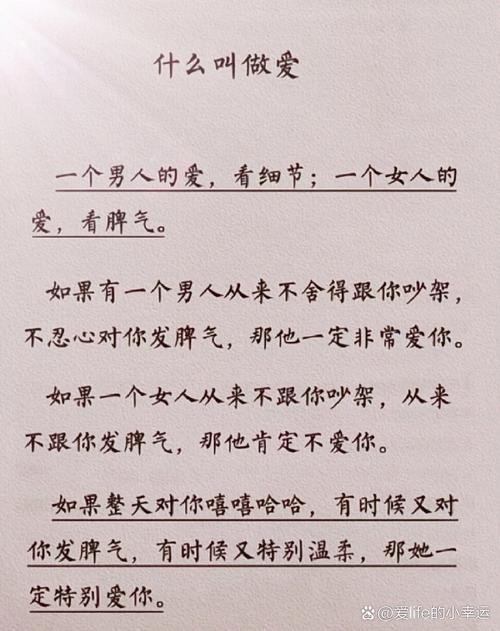 什么叫做爱
一个男人的爱，看细节；一个女人的
爱，看脾气。
如果有一个男人从来不舍得跟你吵架，
不忍心对你发脾气，那他一定非常爱你。
如果一个女人从来不跟你吵架，从来
不跟你发脾气，那他肯定不爱你。
如果整天对你嘻嘻哈哈，有时候又对
你发脾气，有时候又特别温柔，那她一
定特别爱你。
@爱life的小幸运